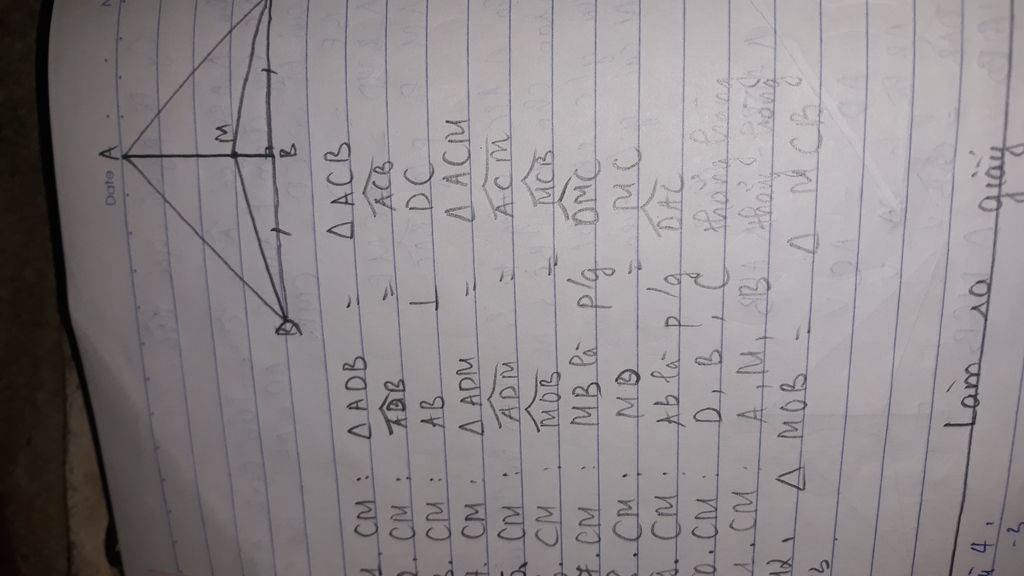 Date
A
M
B
D
1. CM: ΔADB = ΔACB
2. CM: ADB = ACB
3. CM: AB ⊥ DC
4. CM: ΔADM = ΔACM
5. CM: ADM = ACM
CM: MDB = MCB
7. CM: MB là p/g DMC
CM: MD = MC
CM: AB là p/g DAC
10. CM: D, B, C thẳng hàng
1. CM: A, M, B thẳng hàng
12. Δ MDB = Δ MCB
3
Làm ra giấy
4.